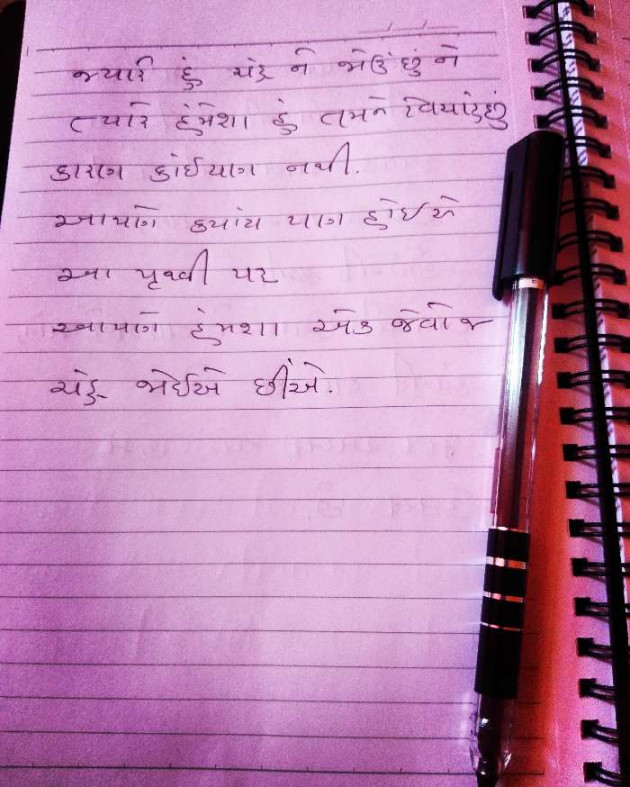 જ્યારે હું ચંદ્ર ને જોઉં છું ને
ત્યારે હંમેશા હું તમને વિચારું છું
કારણ કાંઈપણ નથી.
આપણે ક્યાંય પણ હોઈએ
આ પૃથ્વી પર
આપણે હંમશા એક જેવો જ
ચંદ્ર જોઈએ છીંએ.